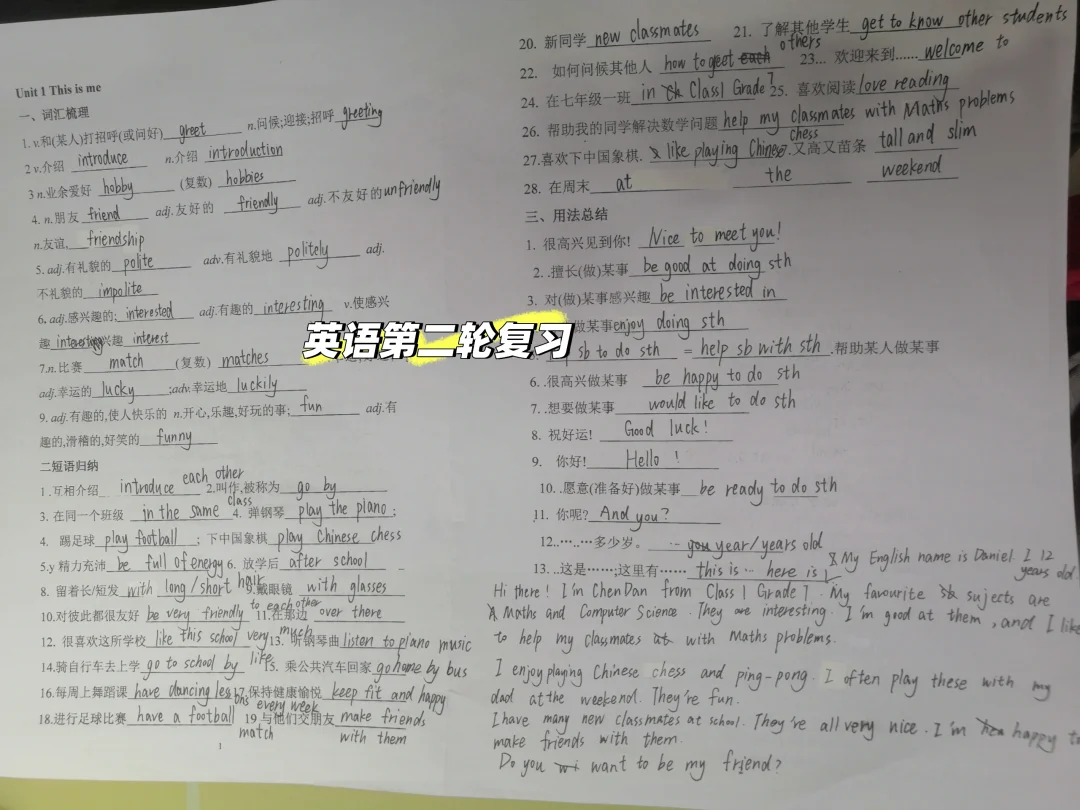 Unit 1 This is me
一、词汇梳理
1. v.和(某人)打招呼(或问好) greet n.问候;迎接;招呼 greeting
2 v.介绍 introduce n.介绍 introduction
3 n.业余爱好 hobby (复数) hobbies
4. n.朋友 friend adj.友好的 friendly adj.不友好的 unfriendly
n.友谊, friendship
5. adj.有礼貌的 polite adv.有礼貌地 politely adj.
不礼貌的 impolite
6. adj.感兴趣的; interested adj.有趣的 interesting v.使感兴
趣 兴趣 interest
7.n.比赛 match (复数) matches
adj.幸运的 lucky ;adv.幸运地 luckily
9. adj.有趣的,使人快乐的 n.开心,乐趣,好玩的事; fun adj.有
趣的,滑稽的,好笑的 funny
二短语归纳
1 .互相介绍 introduce each other 2.叫作,被称为 go by
3. 在同一个班级 in the same class 4. 弹钢琴 play the piano ;
4. 踢足球 play football ; 下中国象棋 play Chinese chess
5.y 精力充沛 be full of energy 6. 放学后 after school
8. 留着长/短发 with long/short hair 9.戴眼镜 with glasses
10.对彼此都很友好 be very friendly to each other 11.在那边 over there
12. 很喜欢这所学校 like this school very much 13. 听钢琴曲 listen to piano music
14.骑自行车去上学 go to school by like 15. 乘公共汽车回家 go home by bus
16.每周上舞蹈课 have dancing lessons every week 17.保持健康愉悦 keep fit and happy
18.进行足球比赛 have a football match 19 与他们交朋友 make friends with them
1
20. 新同学 new classmates 21. 了解其他学生 get to know other students
22. 如何问候其他人 how to greet each others 23... 欢迎来到...... welcome to
24. 在七年级一班 in Class1 Grade 7 25. 喜欢阅读 love reading
26. 帮助我的同学解决数学问题 help my classmates with Maths problems
27.喜欢下中国象棋. like playing Chinese chess .又高又苗条 tall and slim
28. 在周末 at the weekend
三、用法总结
1. 很高兴见到你! Nice to meet you!
2. .擅长(做)某事 be good at doing sth
3. 对(做)某事感兴趣 be interested in
做某事 enjoy doing sth
sb to do sth = help sb with sth .帮助某人做某事
6. .很高兴做某事 be happy to do sth
7. .想要做某事 would like to do sth
8. 祝好运! Good luck!
9. 你好! Hello !
10. .愿意(准备好)做某事 be ready to do sth
11. 你呢? And you?
12..…..…多少岁。 … you year/years old
13. ..这是……;这里有…… this is … here is
My English name is Daniel. I 12 years old.
Hi there! I'm Chen Dan from Class 1 Grade 7. My favourite sujects are
Maths and Computer Science. They are interesting. I'm good at them, and I like
to help my classmates with Maths problems.
I enjoy playing Chinese chess and ping-pong. I often play these with my
dad at the weekend. They're fun.
I have many new classmates at school. They're all very nice. I'm happy to
make friends with them.
Do you want to be my friend?
英语第二轮复习